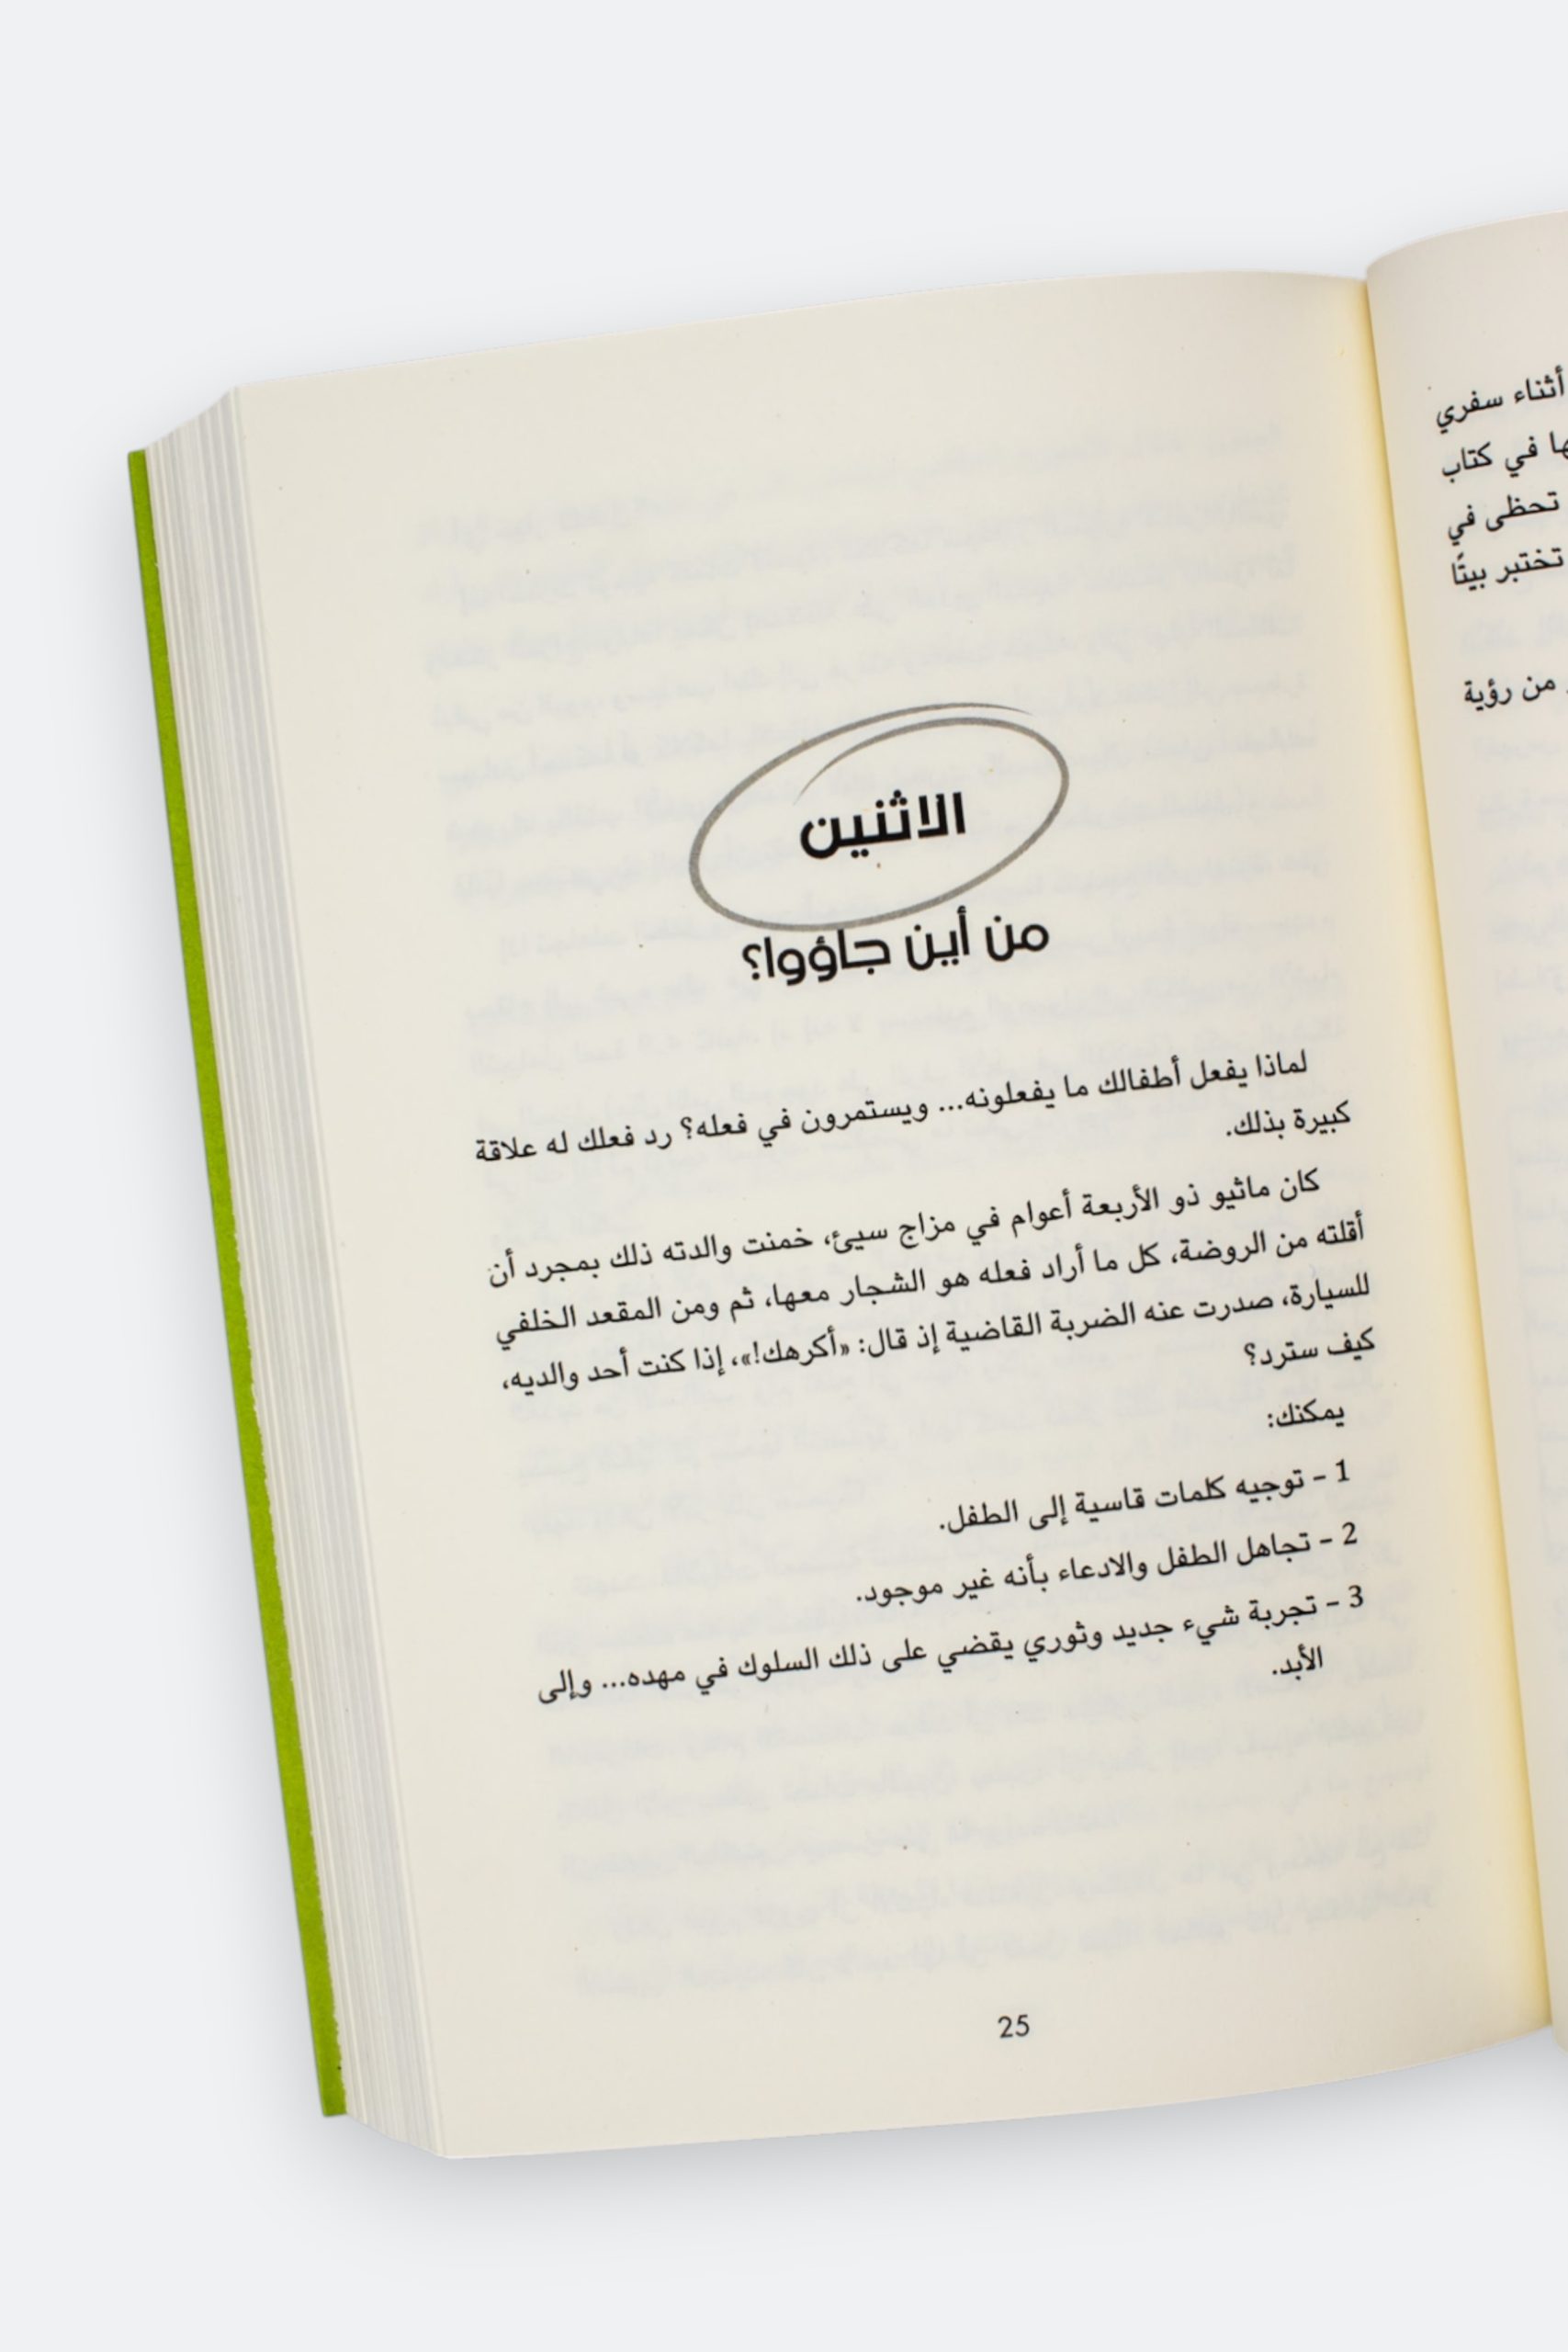 أثناء سفري
في كتاب
تحظى في
تختبر بيتًا
من رؤية
الاثنين
من أين جاؤوا؟
لماذا يفعل أطفالك ما يفعلونه... ويستمرون في فعله؟ رد فعلك له علاقة
كبيرة بذلك.
كان ماثيو ذو الأربعة أعوام في مزاج سيئ، خمنت والدته ذلك بمجرد أن
أقلته من الروضة، كل ما أراد فعله هو الشجار معها، ثم ومن المقعد الخلفي
للسيارة، صدرت عنه الضربة القاضية إذ قال: «أكرهك!»، إذا كنت أحد والديه،
كيف سترد؟
يمكنك:
1 – توجيه كلمات قاسية إلى الطفل.
2 – تجاهل الطفل والادعاء بأنه غير موجود.
3 – تجربة شيء جديد وثوري يقضي على ذلك السلوك في مهده... وإلى
الأبد.
25